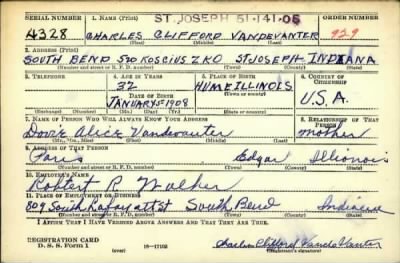 SERIAL NUMBER 1. NAME (Print) ST. JOSEPH 51-141-05 ORDER NUMBER
4328 CHARLES CLIFFORD VANDEVANTER 929
(First) (Middle) (Last)
2. ADDRESS (Print)
SOUTH BEND 520 KOSCIUSZKO ST JOSEPH INDIANA
(Number and street or R. F. D. number) (Town) (County) (State)
3. TELEPHONE 4. AGE IN YEARS 5. PLACE OF BIRTH 6. COUNTRY OF CITIZENSHIP
32 HUME ILLINOIS
DATE OF BIRTH
JANUARY 5 1908 U.S.A.
(Exchange) (Number) (Mo.) (Day) (Yr.) (State or country)
7. NAME OF PERSON WHO WILL ALWAYS KNOW YOUR ADDRESS RELATIONSHIP OF THAT PERSON
Alice Vandevanter mother
(Mr., Mrs., Miss) (First) (Middle) (Last)
9. ADDRESS OF THAT PERSON
Paris Edgar Illionois
(Number and street or R. F. D. number) (Town) (County) (State)
10. EMPLOYER'S NAME
Robert R. Walker
11. PLACE OF EMPLOYMENT OR BUSINESS
809 South Lafayattst South Bend Indiana
(Number and street or R. F. D. number) (Town) (County) (State)
I AFFIRM THAT I HAVE VERIFIED ABOVE ANSWERS AND THAT THEY ARE TRUE.
REGISTRATION CARD
D. S. S. Form 1 (over) 16-17105 Charles Clifford Vande Vanter
(Registrant's signature)